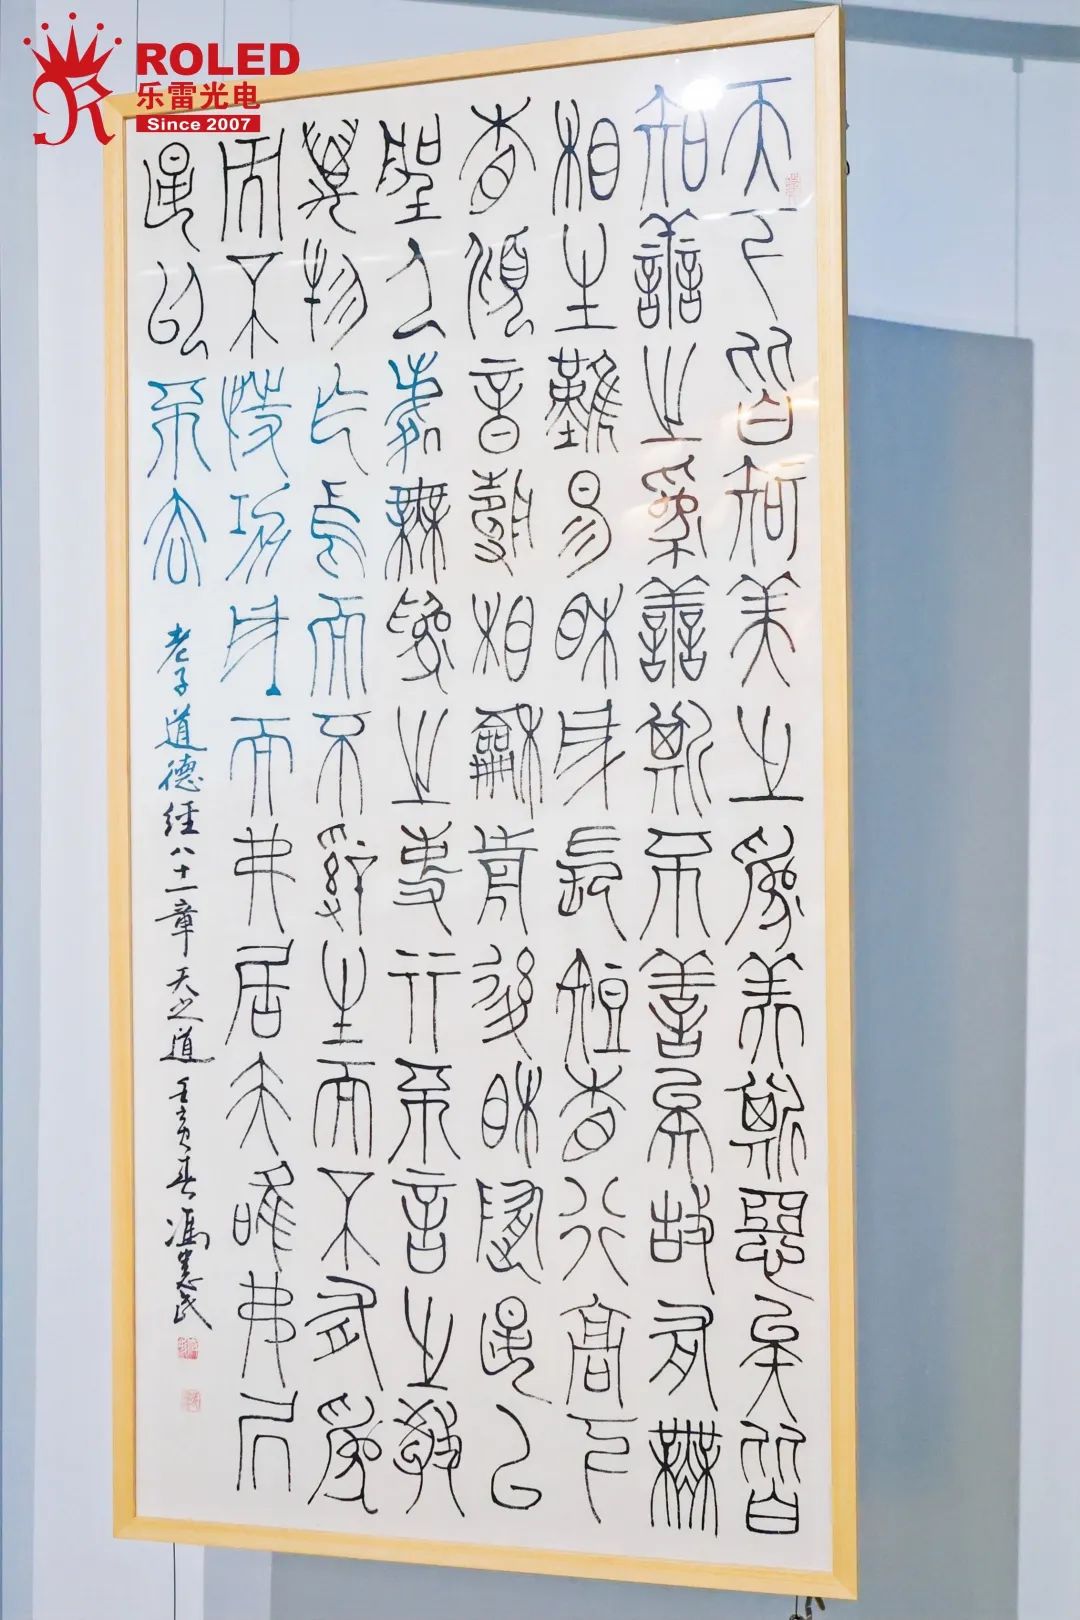 ROLED
乐雷光电
Since 2007
天下皆知美之為美斯惡矣皆
知善之為善斯不善矣故有無
相生難易相成長短相形高下
相傾音聲相和前後相隨是以
聖人處無為之事行不言之教
萬物作焉而不辭生而不有為
而不恃功成而弗居夫唯弗居
是以不去
老子道德經八十一章天之道壬寅春馮惠民